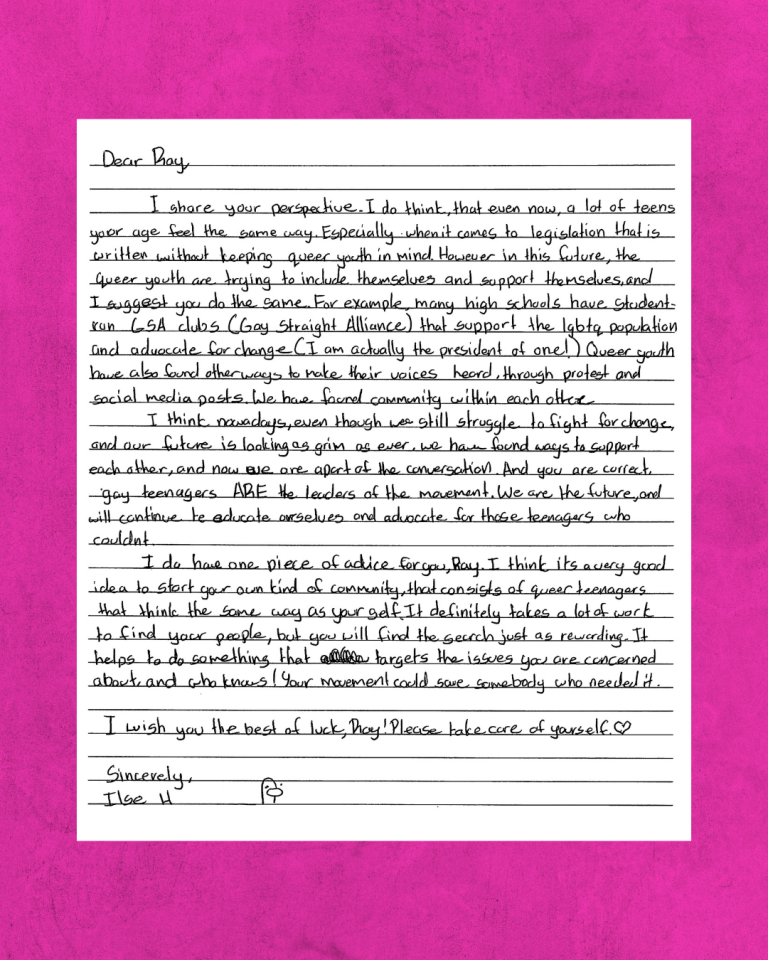 Dear Ray,
I share your perspective. I do think, that even now, a lot of teens
your age feel the same way. Especially when it comes to legislation that is
written without keeping queer youth in mind. However in this future, the
queer youth are trying to include themselves and support themselves, and
I suggest you do the same. For example, many high schools have student-
run GSA clubs (Gay Straight Alliance) that support the lgbtq population
and advocate for change (I am actually the president of one!) Queer youth
have also found other ways to make their voices heard, through protest and
social media posts. We have found community within each other.
I think nowadays, even though we still struggle to fight for change,
and our future is looking as grim as ever, we have found ways to support
each other, and now we are apart of the conversation. And you are correct,
gay teenagers ARE the leaders of the movement. We are the future, and
will continue to educate ourselves and advocate for those teenagers who
couldnt.
I do have one piece of advice for you, Ray. I think its a very good
idea to start your own kind of community, that consists of queer teenagers
that think the same way as your self. It definitely takes a lot of work
to find your people, but you will find the search just as rewarding. It
helps to do something that targets the issues you are concerned
about, and who knows! Your movement could save somebody who needed it.
I wish you the best of luck, Ray! Please take care of yourself. ♡
Sincerely,
Ilse H